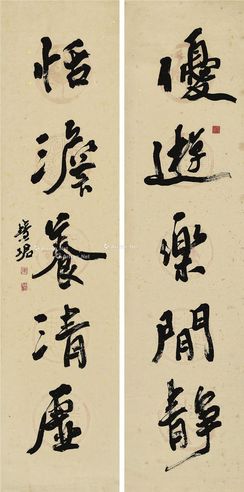 優遊樂閒靜
恬澹養清虛